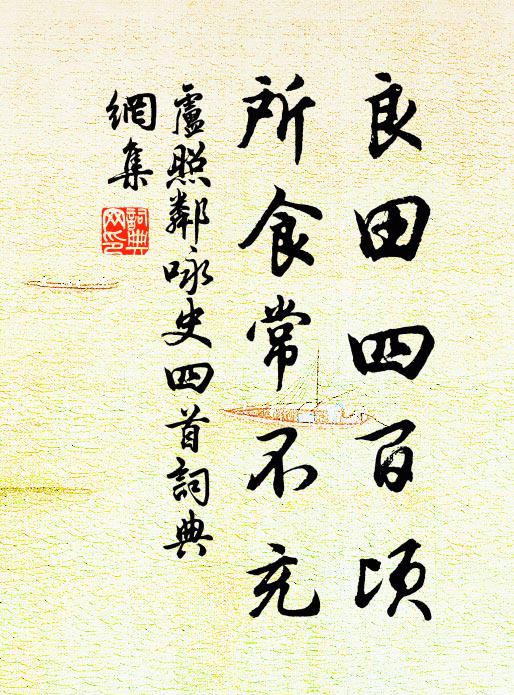 良田四百頃
所食常不充
盧照鄰咏史四首詞典
網集
詞典
网印